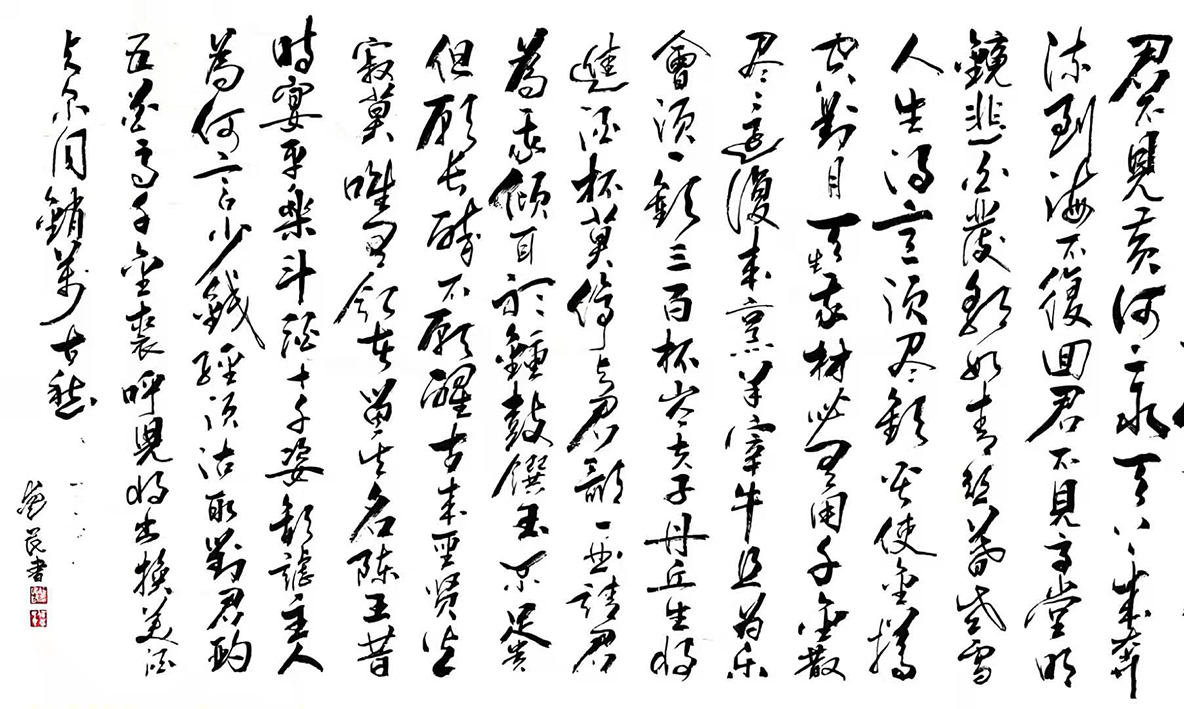 君不見黃河之水天上來奔
流到海不復回君不見高堂明
鏡悲白髮朝如青絲暮成雪
人生得意須尽歡莫使金樽
空對月天生我材必有用千金散
尽還復來烹羊宰牛且為乐
會須一飲三百杯岑夫子丹丘生將
進酒杯莫停與君歌一曲請君
為我傾耳聽鐘鼓饌玉不足貴
但願長醉不願醒古來聖賢皆
寂寞唯有飲者留其名陳王昔
時宴平樂斗酒十千恣歡謔主人
為何言少錢徑須沽取對君酌
五花馬千金裘呼兒將出換美酒
與尔同銷萬古愁
書